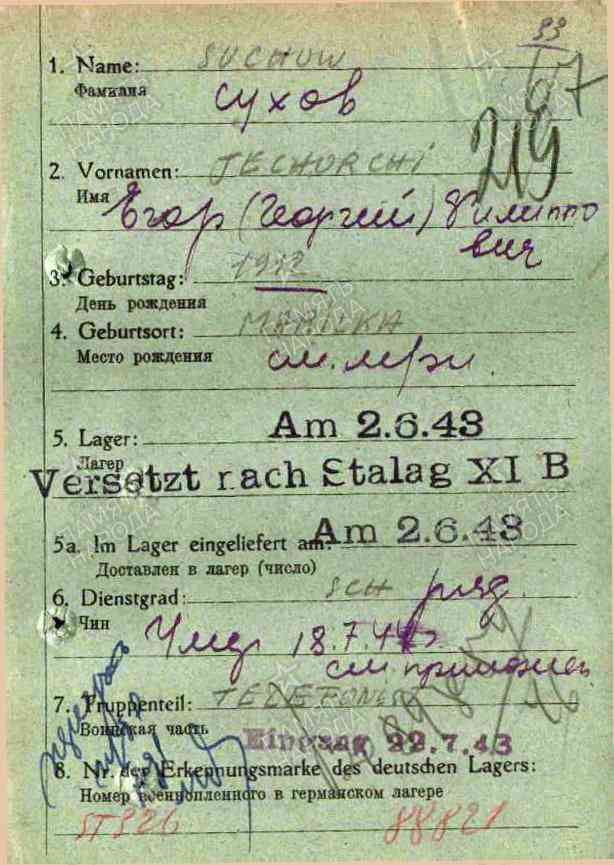 99
67
1. Name: SUCHOW
Фамилия
Сухов
219
2. Vornamen: JECHORCHI
Имя
Егор (Георгий) Филиппо
вич
3. Geburtstag: 1912
День рождения
4. Geburtsort: MRAILKA
Место рождения
см. мри.
5. Lager: Am 2.6.43
Лагер
Versetzt nach Stalag XI B
5a. Im Lager eingeliefert am: Am 2.6.43
Доставлен в лагер (число)
6. Dienstgrad: SCH ряд.
Чин
Умер 18.7.44
7. Truppenteil: TELEFONIST
Воинская часть
Eingang 22.7.43
8. Nr. der Erkennungsmarke des deutschen Lagers:
Номер военнопленного в германском лагере
ST326 88821